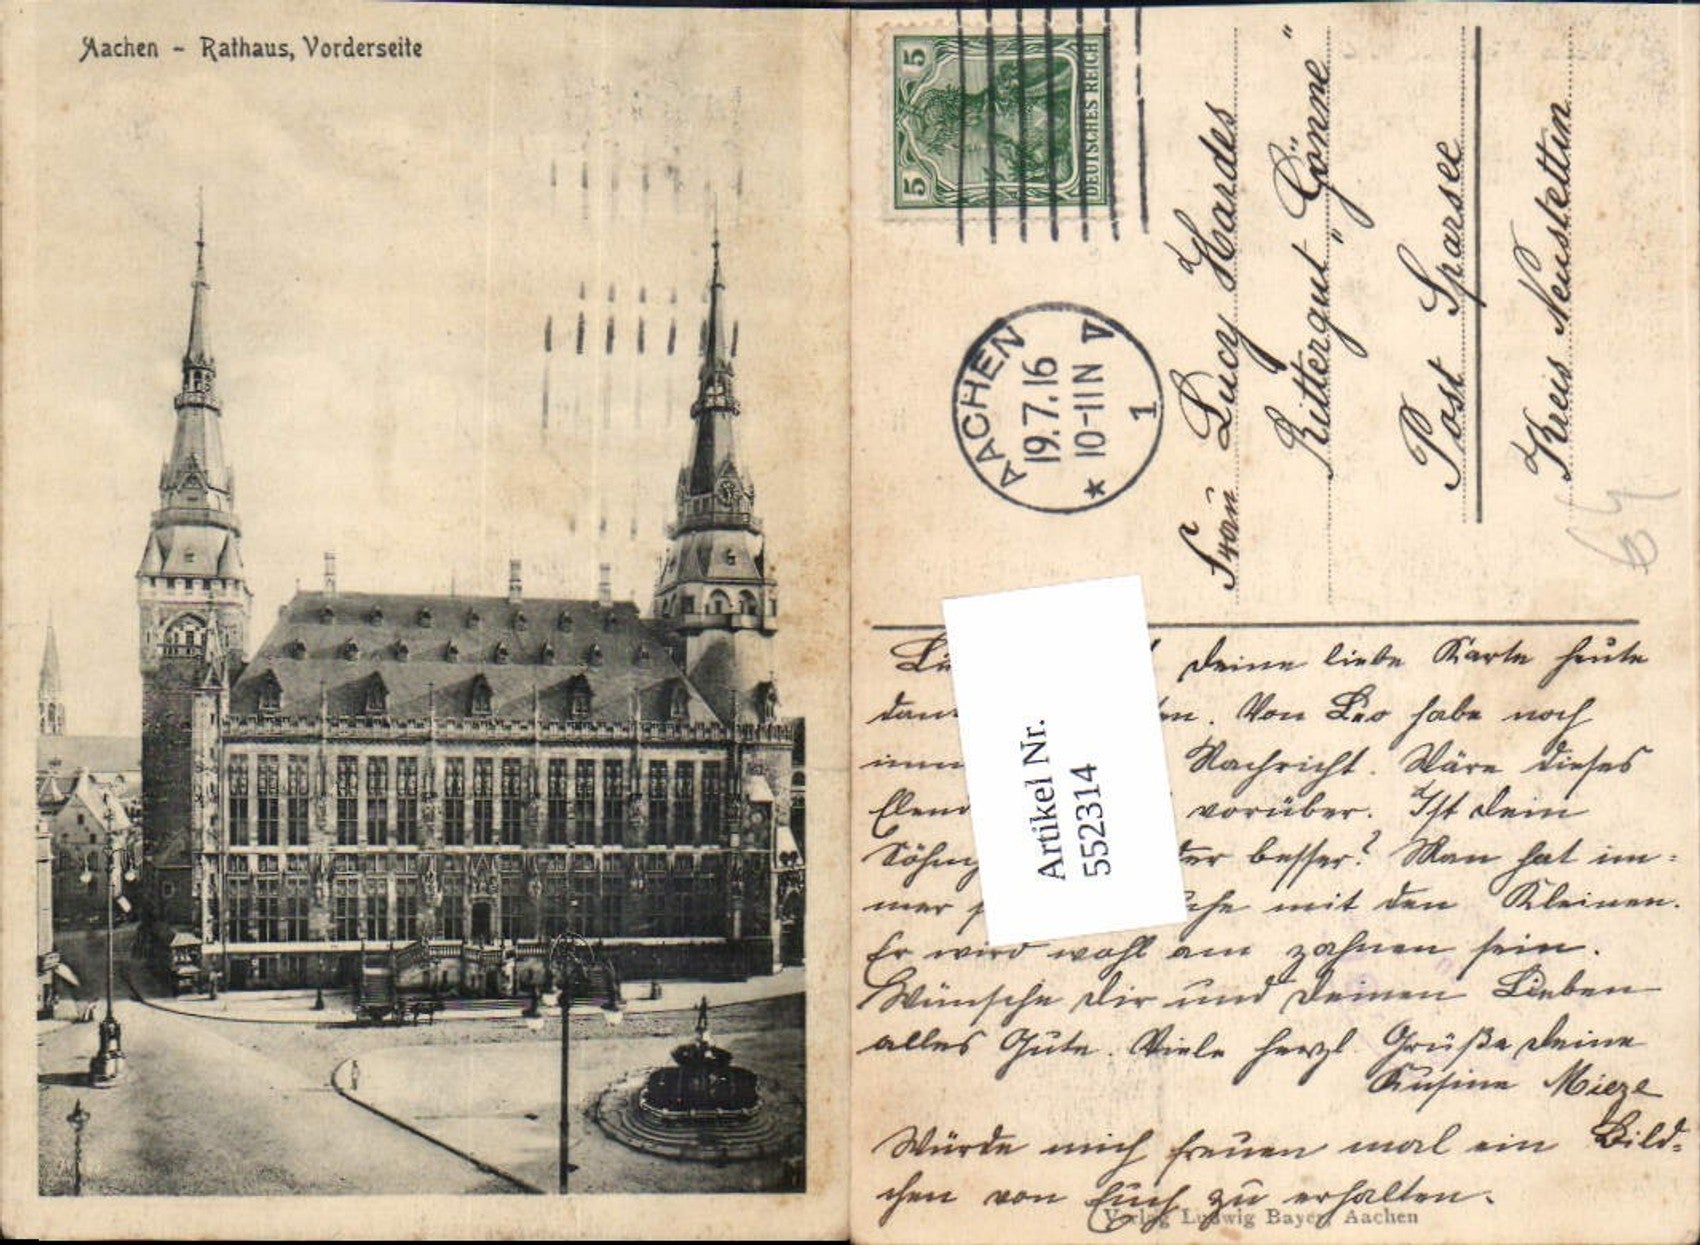 Aachen - Rathaus, Vorderseite
5 5
DEUTSCHES REICH
AACHEN
19.7.16
10-11N V
* 1
Frau Lucy Hardes
Rittergut "Gönne"
Post Sparsee
Kreis Neustettin
64
Artikel Nr.
552314
deine liebe Karte heute
Von Leo habe noch
Nachricht. Wäre dieses
Elend vorüber. Ist dein
besser? Man hat im=
mer mit den Kleinen.
Er wird wohl am zahnen sein.
Wünsche dir und deinen Lieben
alles Gute. Viele herzl. Grüße deine
Kusine Mieze
Würde mich freuen mal ein Bild=
chen von Euch zu erhalten.
Verlag Ludwig Bayer, Aachen